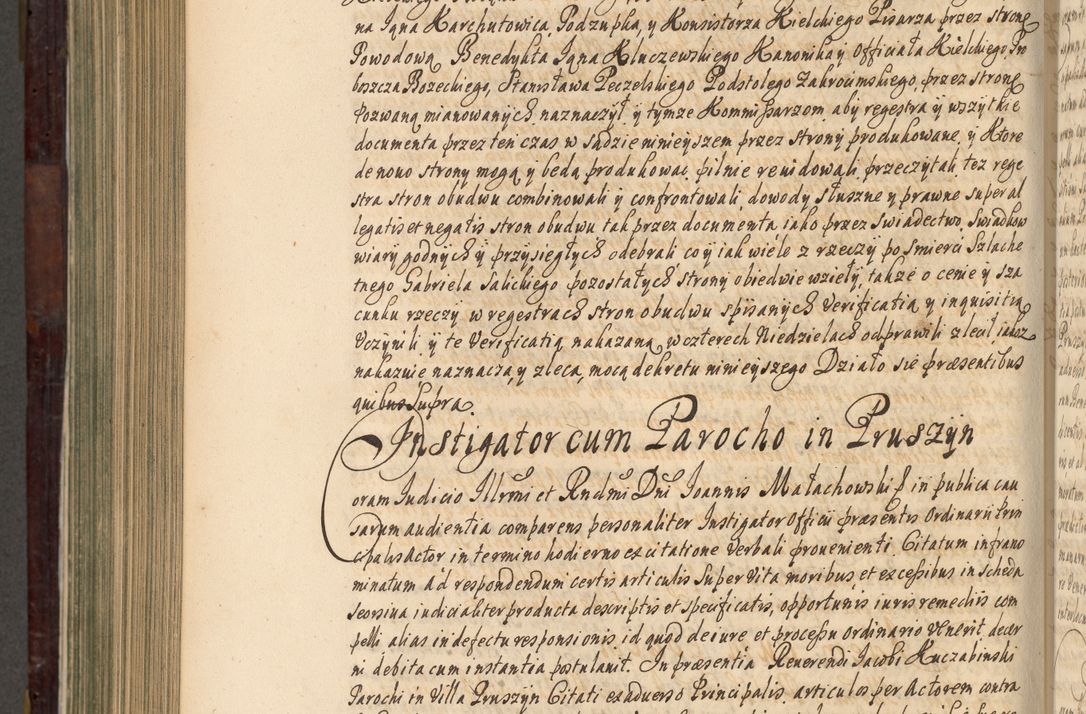 na Jana Karchutowica Podzupka, y Konsistorza Kielckiego Pisarza przez stronę
Powodową Benedykta Jana Kluczewskiego Kanonika y Officiała Kielckiego, Pro
boszcza Bozeckiego, Stanisława Peczelskiego Podstolego Zakroumskiego, przez stronę
Pozwaną mianowanych naznaczył, y tymze Kommissarzom, aby regestra y wszytkie
documenta przez ten czas w sądzie ninieyszem przez strony produkowane, y Ktore
de nouo strony mogą y będą produkować pilnie rewidowali przeczytali też rege
stra stron obudwu combinowali y confrontowali, dowody słuszne y prawne super al
legatis et negatis stron obudwu tak przez documenta iako przez swiadectwo Swiadkow
wiary godnych y przysięgłych odebrali co y iak wiele z rzeczy po smierci Szlache
tnego Gabriela Salickiego pozostałych strony obiedwie wzięły, takze o cenie y sza
cunku rzeczy w regestrach stron obudwu spisanych Verificatią y inquisitią
Vczynili y te Verificatią nakazaną w czterech Niedzielach odprawili zlecił iakoz
nakazuie naznacza, y zleca, mocą dekretu ninieyszego Działo się præsentibus
quibus supra.
Instigator cum Parocho in Pruszÿn
Coram Judicio Illrmi et Rndmi Dni Joannis Małachowski in publica cau
sarum audientia comparens personaliter Instigator Officii præsentis Ordinarii Prin
cipalis Actor in termino hodierno ex citatione Verbali prouenienti Citatum infrano
minatum Ad respondendum certis articulis Super Vita moribus et excessibus in scheda
seorsiua iudicialiter producta descriptis et specificatis, opportunis iuris remediis com
pelli alias in defectu responsionis id quod de iure et processu ordinario Venerit decer
ni debita cum instantia postulauit. In præsentia Reuerendi Jacobi Kuczabinski
Parochi in Villa Pruszÿn Citati ex aduerso Principalis articulos per Actorem contra